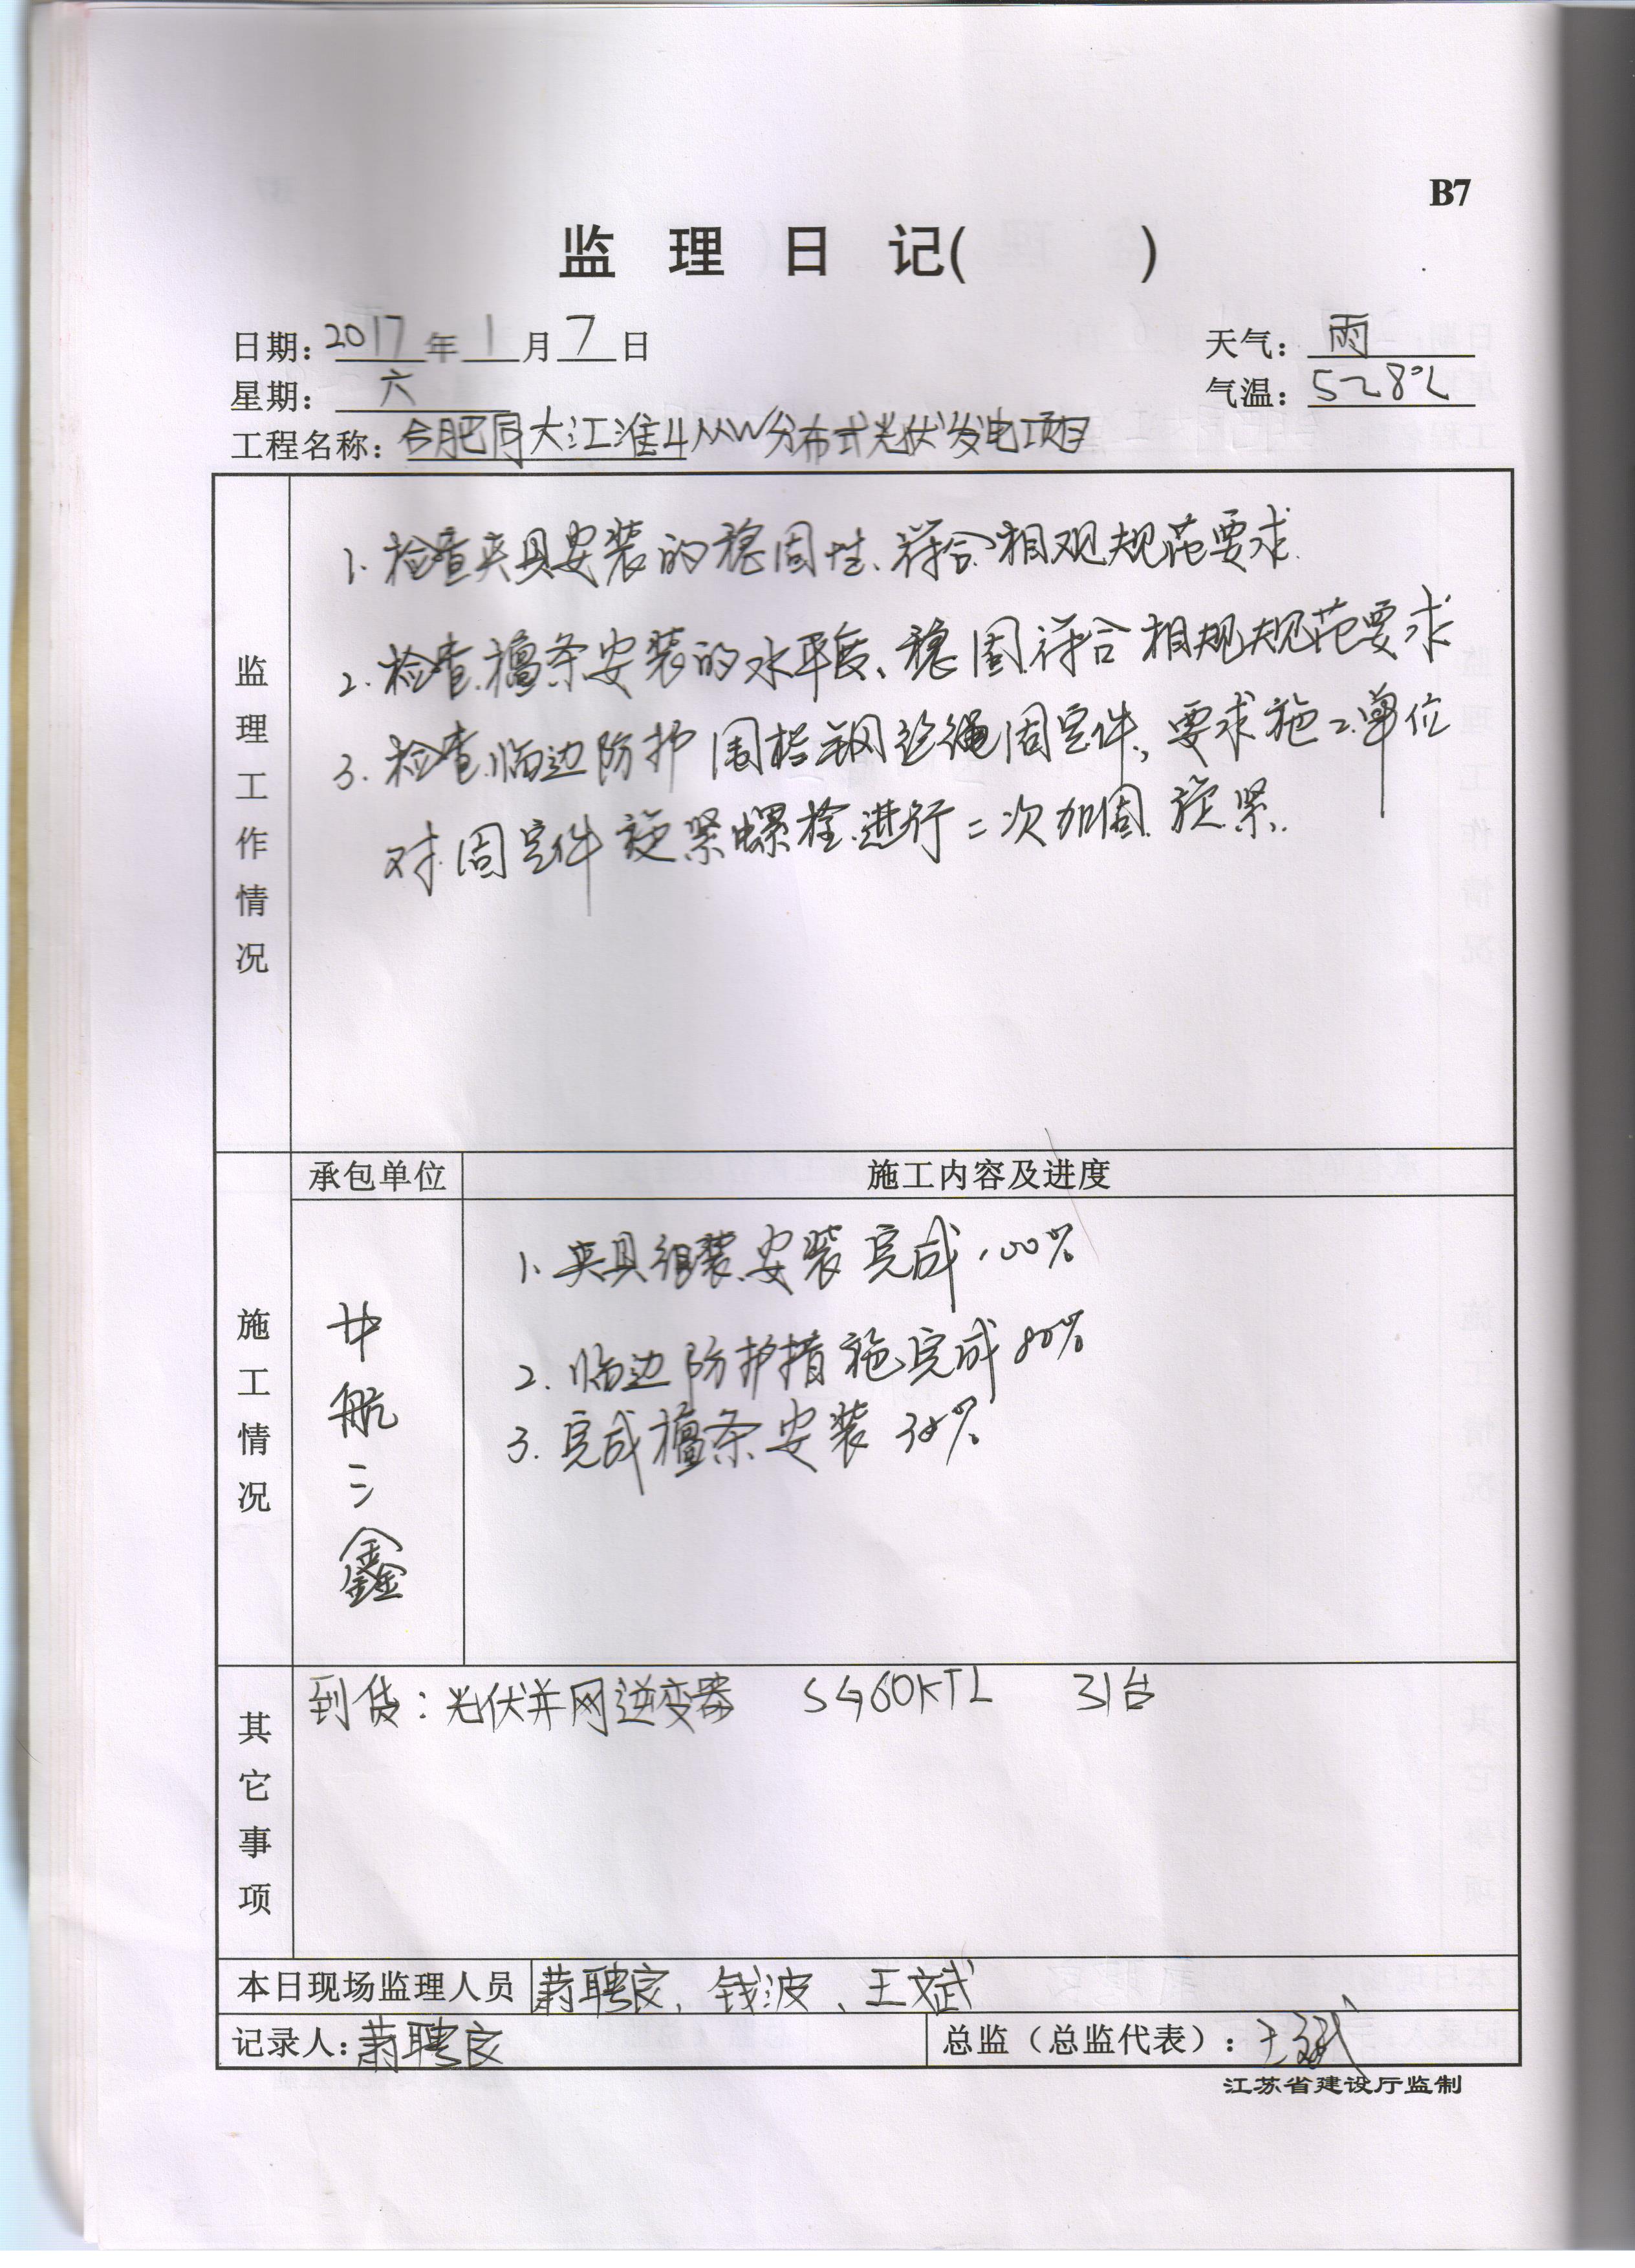 B7
监理日记(　　)
日期：2017年1月7日　天气：雨
星期：六　气温：5~28℃
工程名称：合肥同大江淮4MW分布式光伏发电项目
监理工作情况
1. 检查夹具安装的稳固性、符合相观规范要求.
2. 检查檩条安装的水平度、稳固符合相规规范要求
3. 检查临边防护围栏钢丝绳固定件，要求施工单位
对固定件旋紧螺栓进行二次加固旋紧.
承包单位　施工内容及进度
施工情况
中航三鑫
1、夹具组装、安装完成100%
2. 临边防护措施完成80%
3. 完成檩条安装30%
其它事项
到货：光伏并网逆变器　SG60KTL　31台
本日现场监理人员　聘良、钱波、王斌
记录人：聘良　总监（总监代表）：王斌
江苏省建设厅监制